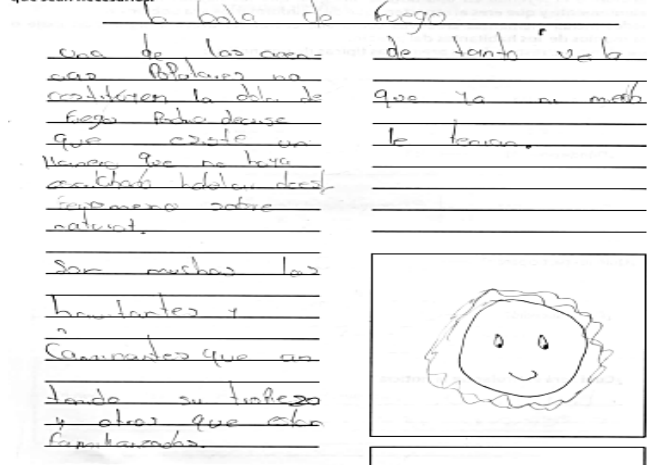 la bola de fuego
una de las creen-
cias Populares no
costituyen la bola de
fuego Podria decirse
que existe un
Llanero que no haya
escuchado hablar de est
fenomeno sobre
natural.
Son muchos los
habitantes y
Caminantes que an
tenido su tropiezo
y otros que estan
familiareados.
de tanto verla
que ya ni miedo
le tenian.